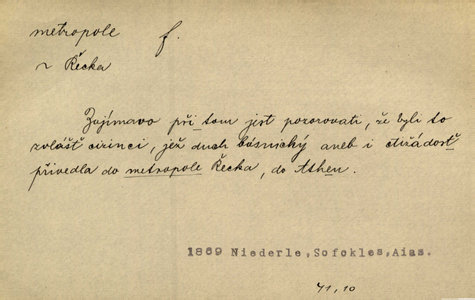 metropole f.
~ Řecka
Zajímavo při tom jest pozorovati, že byli to
zvlášť cizinci, jež duch básnický aneb i ctižádosť
přivedla do metropole Řecka, do Athen.
1869 Niederle, Sofokles, Aias.
41,10